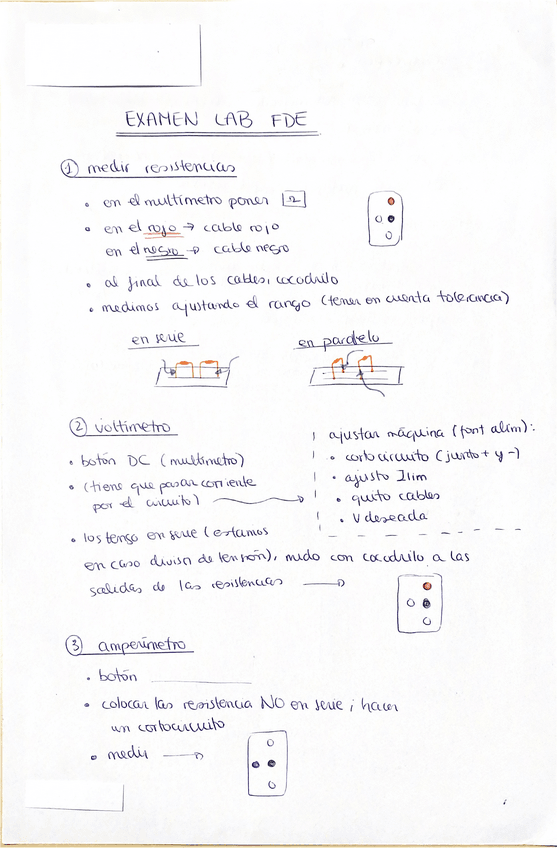 EXAMEN LAB FDE
① medir resistencias
• en el multímetro poner Ω
• en el rojo → cable rojo
en el negro → cable negro
• al final de los cables, cocodrilo
• medimos ajustando el rango (tener en cuenta tolerancia)
en serie
en paralelo
② voltímetro
• botón DC (multímetro)
• (tiene que pasar corriente
por el circuito)
ajustar máquina (font alim):
• cortocircuito (junto + y -)
• ajusto Ilim
• quito cables
• V deseada
• los tengo en serie (estamos
en caso divisor de tensión), mido con cocodrilo a las
salidas de las resistencias →
③ amperímetro
• botón
• colocar las resistencia NO en serie; hacer
un cortocircuito
• medir →